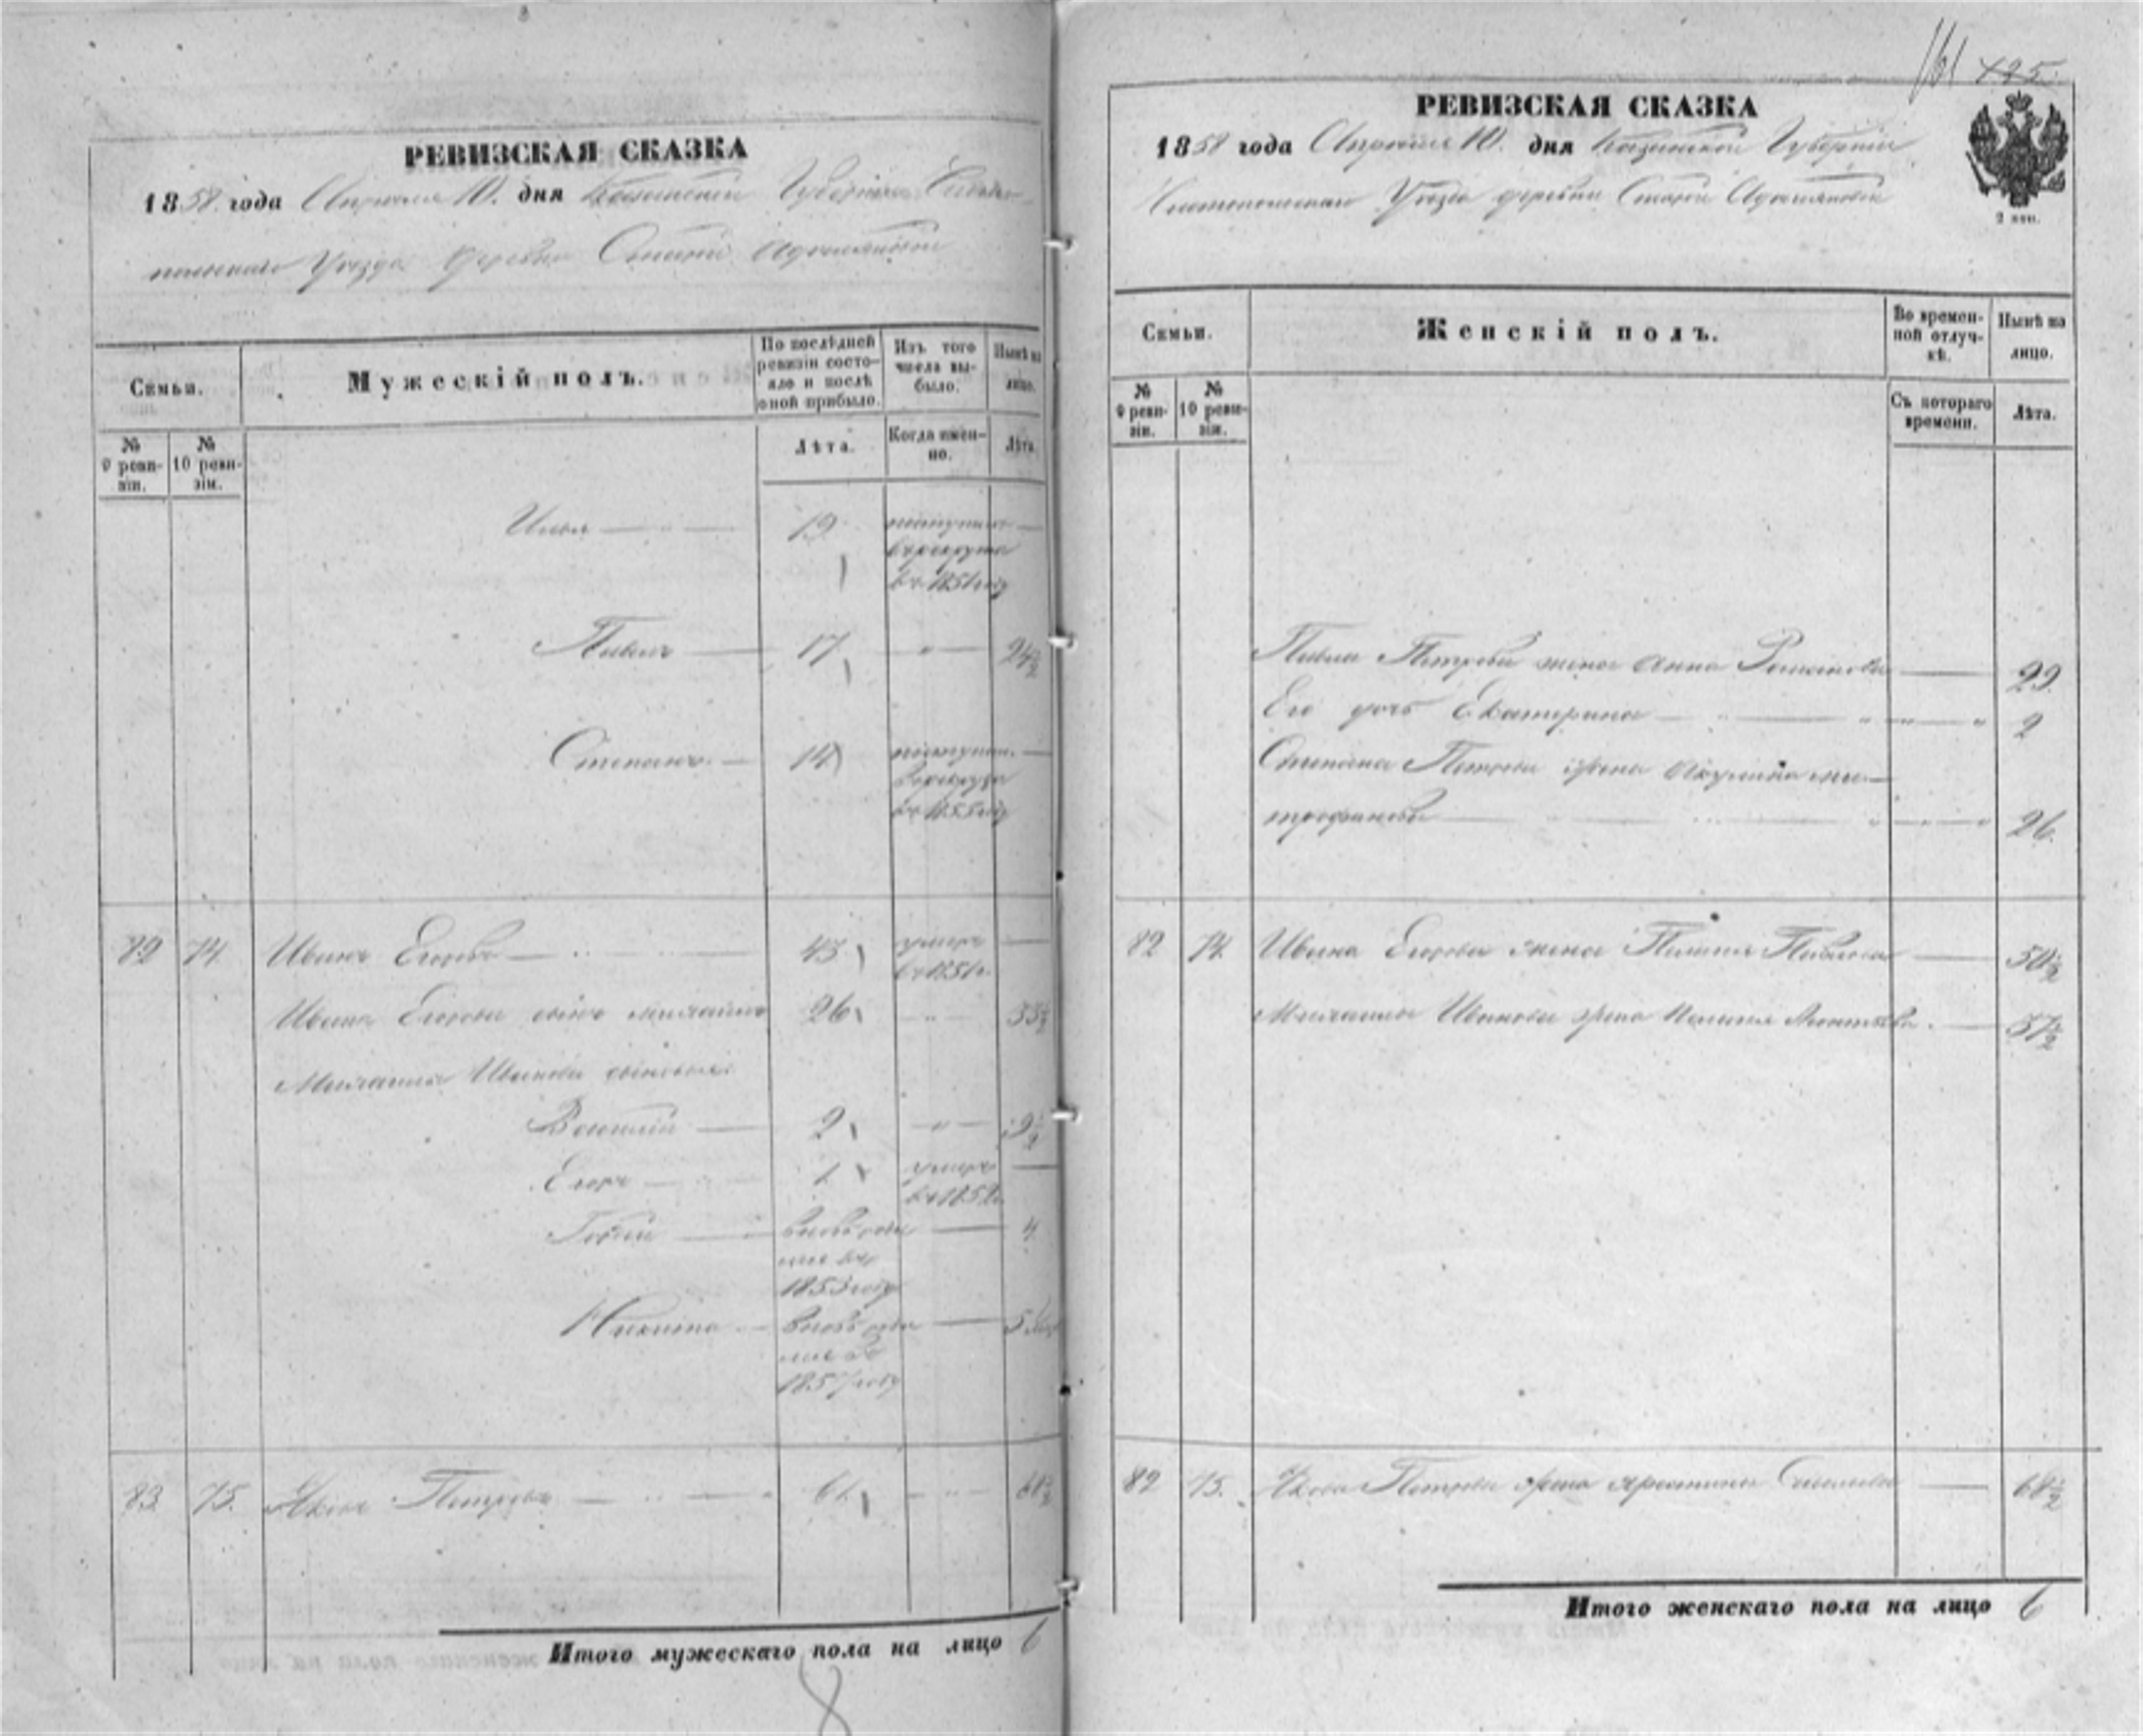 РЕВИЗСКАЯ СКАЗКА
1858 года Апреля 10. дня Казанской Губернии Чисто-
польскаго Уезда деревни Старой
Семьи.
Мужескій полъ.
По послѣдней ревизіи состояло и послѣ оной прибыло.
Изъ того числа выбыло.
Нынѣ на лицо.
№ 9 ревизіи.
№ 10 ревизіи.
Лѣта.
Когда именно.
Лѣта.
Илья 19 поступил
в рекруты
въ 1851 году
Павелъ 17 24½
Степанъ 14 поступил
в рекруты
въ 1855 году
82 74. Иванъ Егоровъ 43 умеръ
въ 1851 г.
Ивана Егорова сынъ Михайло 26 33½
Михайла Иванова сыновья:
Василій 2 9½
Егоръ 1 умеръ
Вновь 4
1853 году
Никита Вновь 5
1857 году
83 75. Яковъ Петровъ 61 68½
Итого мужескаго пола на лицо 6
8
161 425.
РЕВИЗСКАЯ СКАЗКА
1858 года Апреля 10. дня Казанской Губернии
Чистопольскаго Уезда деревни Старой
2 коп.
Семьи.
Женскій полъ.
Во временной отлучкѣ.
Нынѣ на лицо.
№ 9 ревизіи.
№ 10 ревизіи.
Съ котораго времени.
Лѣта.
Павла Петрова жена Анна Романова 29.
Его дочь Екатерина 2
Степана Петрова жена Акулина Ми-
трофанова 26.
82 74. Ивана Егорова жена Павлова 50½
Михайла Иванова жена 37½
82 75. Якова Петрова жена 68½
Итого женскаго пола на лицо 6